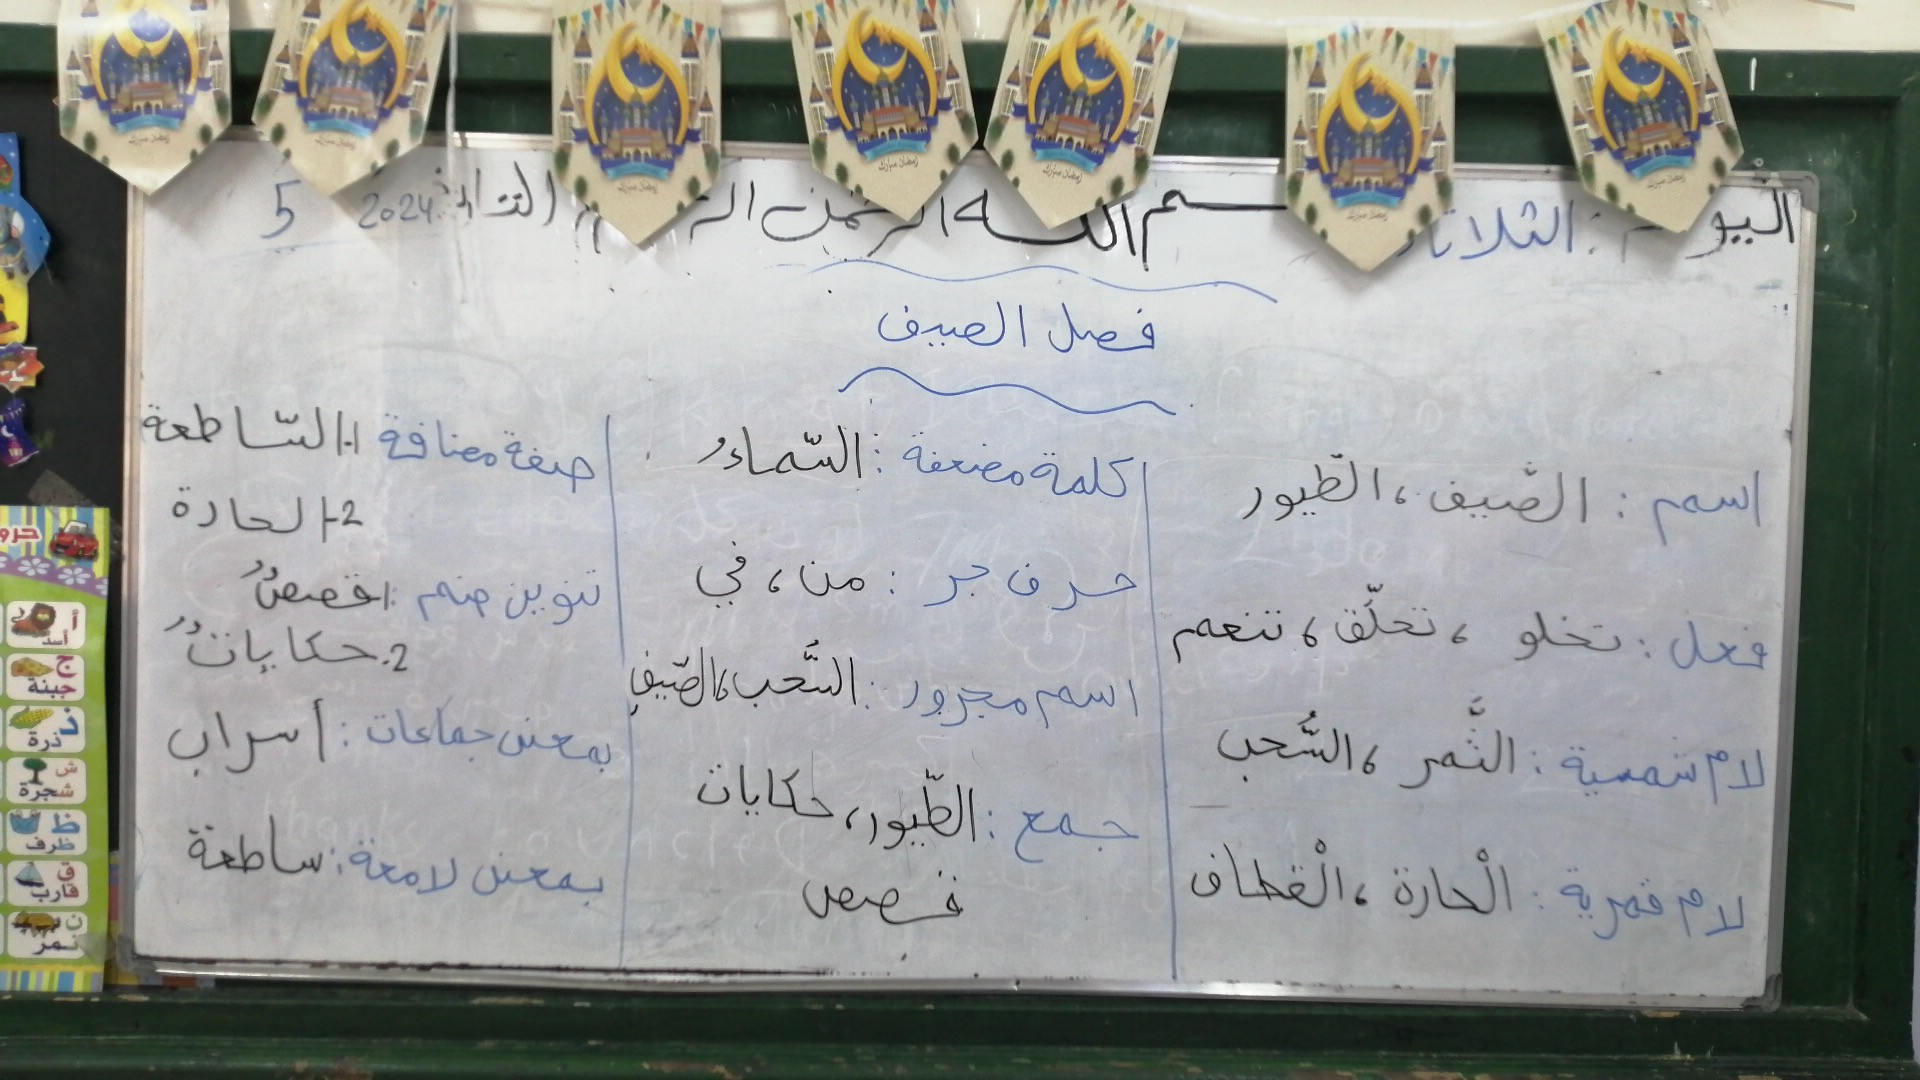 اليوم : الثلاثاء
بسم الله الرحمن الرحيم
التاريخ: 2024
5
فصل الصيف
اسم : الصّيف ، الطّيور
فعل : تخلو ، تحلّق ، تنعم
لام شمسية : الثَّمر ، السُّحب
لام قمرية : الْحارة ، الْقطاف
كلمة مضعفة : السّماءُ
حرف جر : من ، في
اسم مجرور : السُّحب ، الصّيفِ
جمع : الطّيور ، حكايات
قصص
صفة مضافة 1. السّاطعة
2- الحارة
تنوين ضم : 1. قصصٌ
2. حكاياتٌ
بمعنى جماعات : أسراب
بمعنى لامعة : ساطعة
رمضان مبارك
رمضان مبارك
رمضان مبارك
رمضان مبارك
رمضان مبارك
رمضان مبارك
رمضان مبارك
حرو
أ
أسد
ج
جبنة
ذ
ذرة
ش
شجرة
ظ
ظرف
ق
قارب
ن
نمر